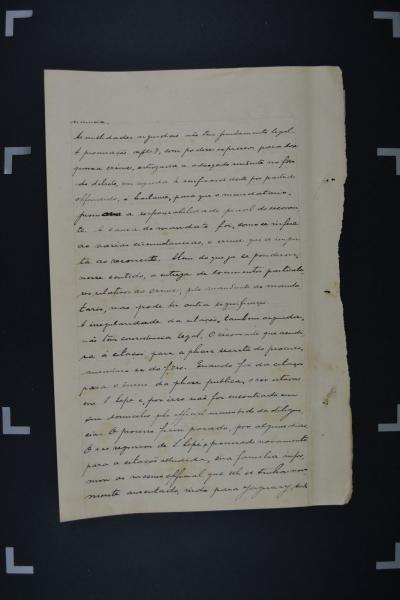 nuncia.
As nullidades arguidas não têm fundamento legal.
A procuração de fls 7, com poderes expressos para dar
queixa crime, outorgada a advogado residente no foro
do delicto, em seguida á
offendido, é bastante, para que o mandatario
promova a responsabilidade penal do recorren-
te. A causa do mandato foi, como se infere
de varias circumstancias, o crime que se impu-
ta ao recorrente. Alem do que já se ponderou,
nesse sentido, a entrega de documentos particula-
res, relativos ao crime, pelo mandante ao manda-
tario, não pode ter outra significação.
A irregularidade da citação, tambem arguida,
não têm consistencia legal. O recorrente que acudi-
ra á citação para a phase secreta do processo,
ausentou-se do fôro. Quando foi da citação
para o inicio da phase publica, o réo estava
em S. Sepé e, por isso não foi encontrado em
seu domicilio pelo official incumbido da diligen-
cia. O processo ficou parado, por alguns dias.
O réo regressou de S. Sepé e, procurado novamente
para a citação alludida, sua familia infor-
mou ao mesmo official que elle se tinha nova-
mente ausentado, indo para Jaguary, onde